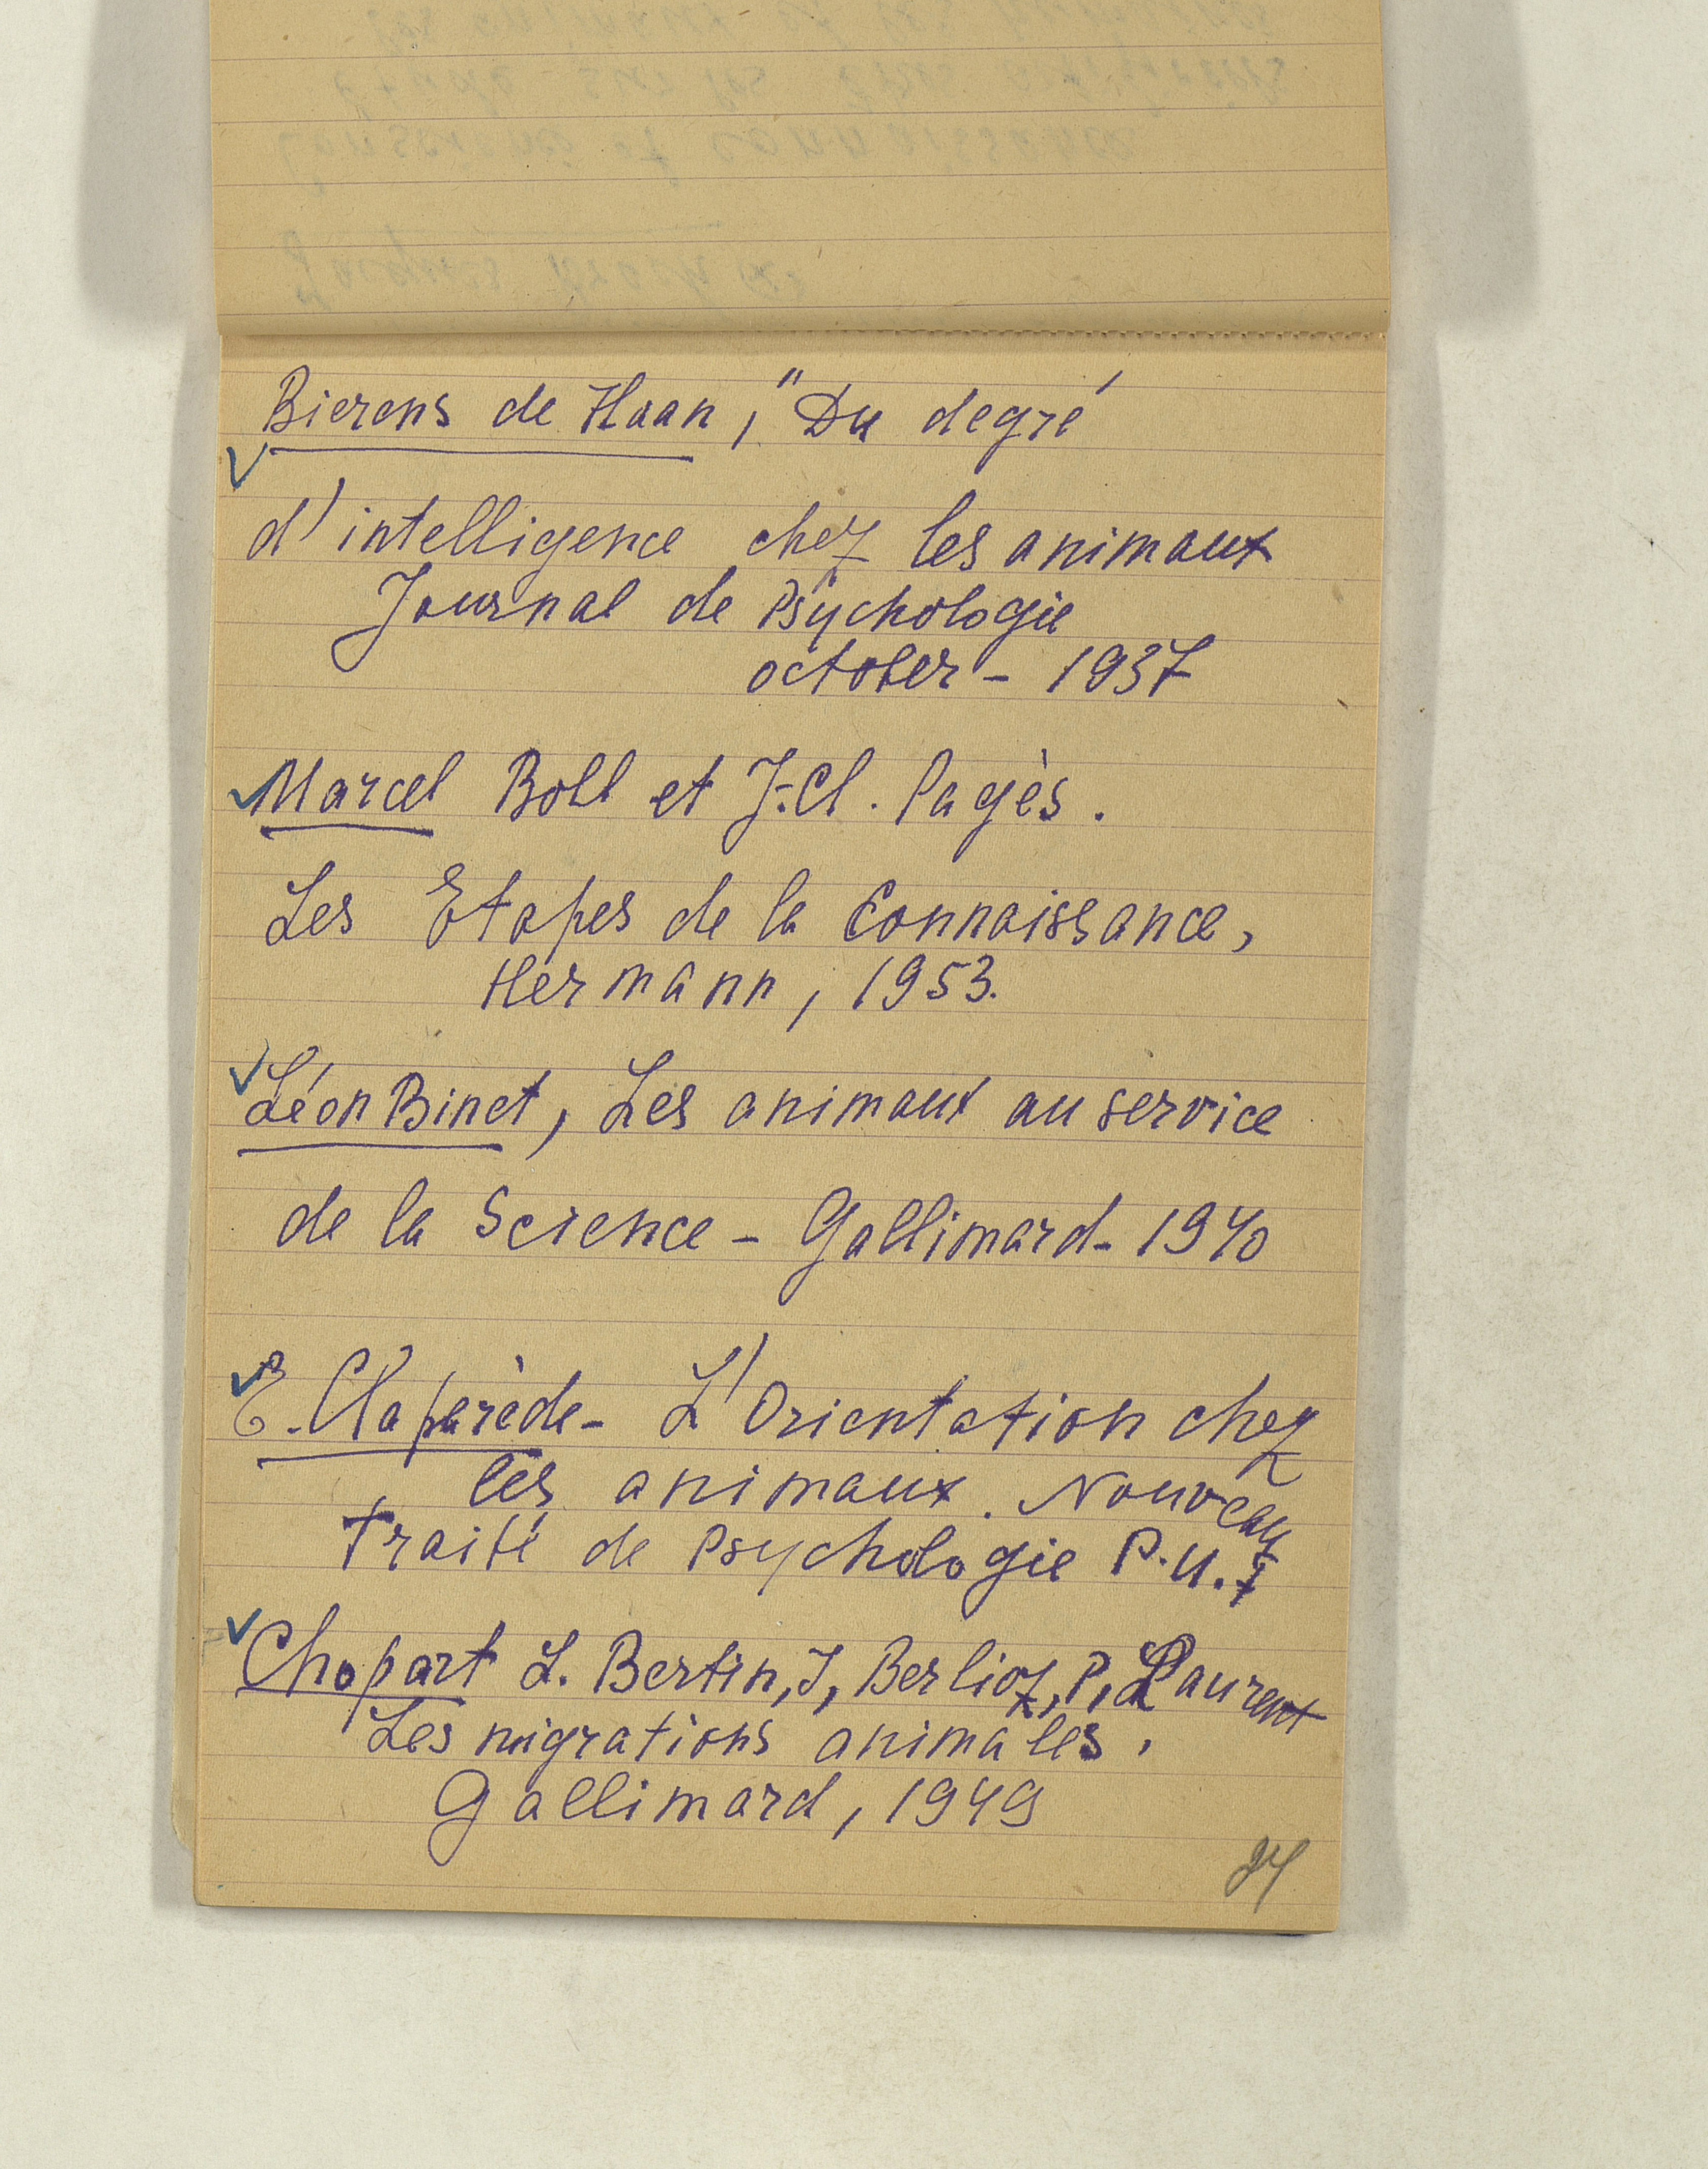 Bierens de Haan, "Du degré
d'intelligence chez les animaux
Journal de Psychologie
october - 1937
Marcel Boll et J.-Cl. Pagès.
Les Etapes de la Connaissance,
Hermann, 1953.
Léon Binet, Les animaux au service
de la Science - Gallimard - 1940
E. Claparède - L'Orientation chez
les animaux. Nouveau
Traité de Psychologie P.U.F
Chopart L. Bertin, J, Berlioz, P, Laurent
Les migrations animales,
Gallimard, 1949
24